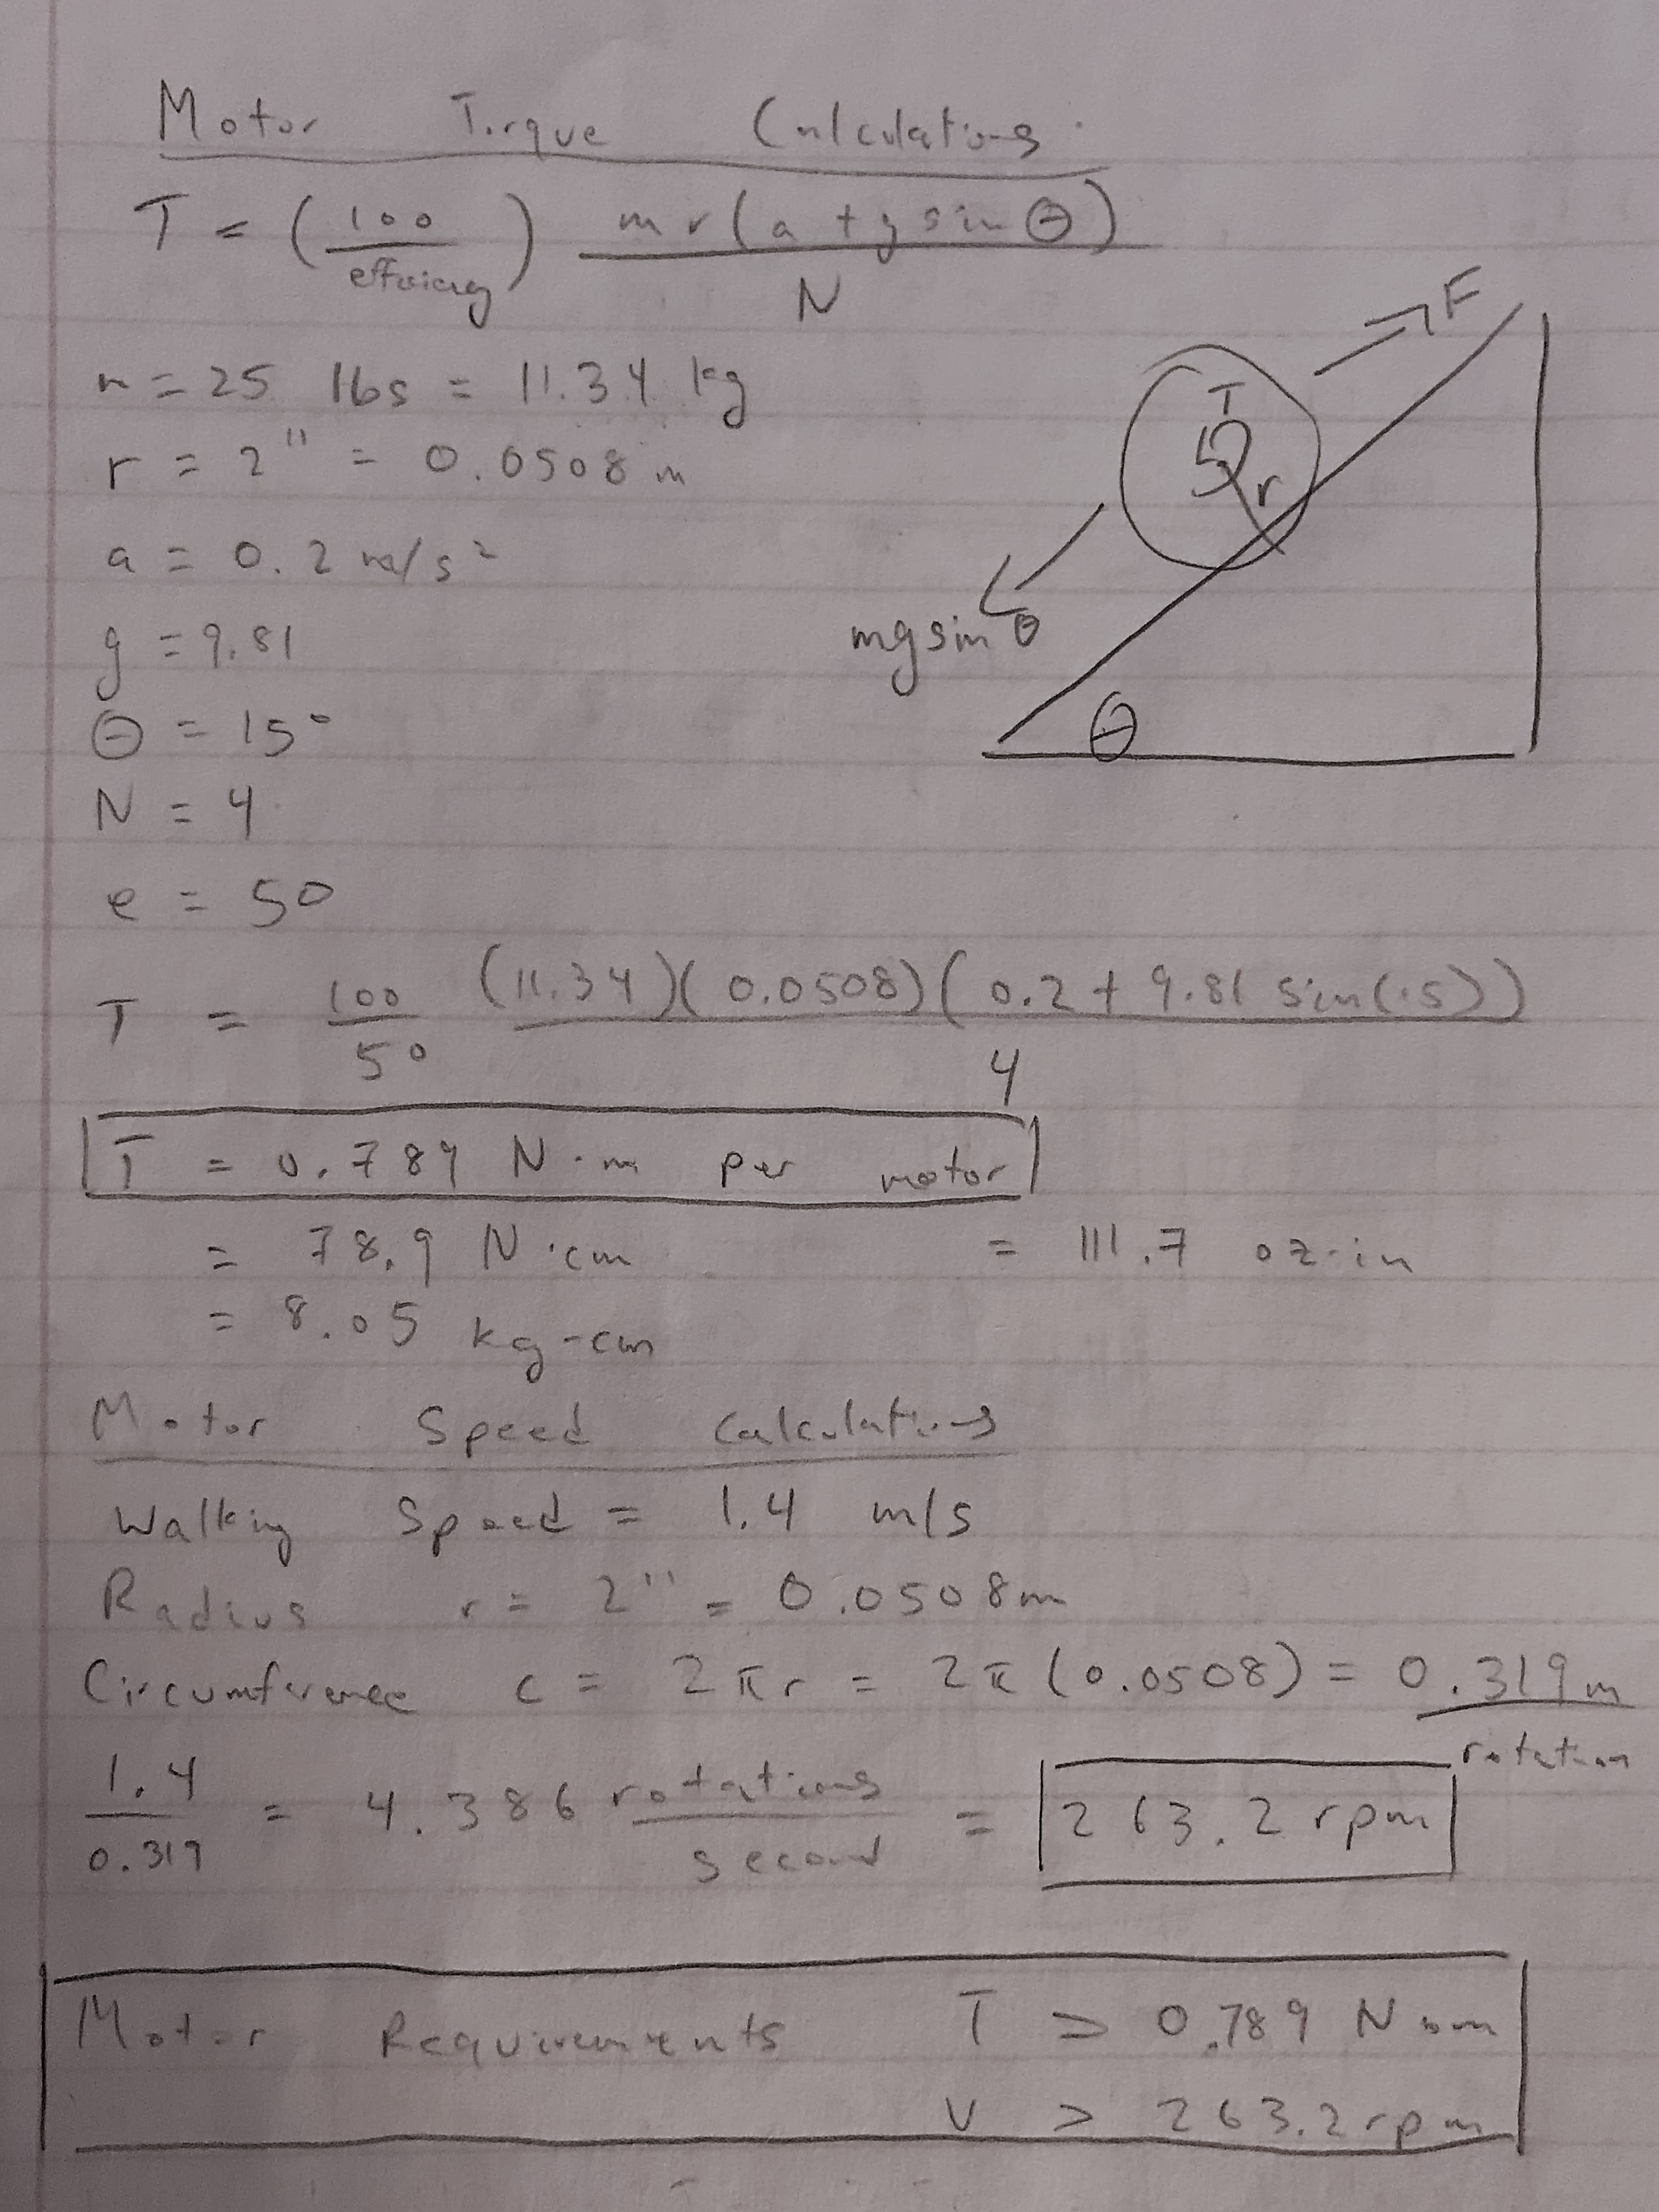 Motor Torque Calculations
T = (100/efficiency) mr(a + g sin θ)/N
F
m = 25 lbs = 11.34 kg
T
r = 2" = 0.0508 m
r
a = 0.2 m/s²
g = 9.81
mg sin θ
θ = 15°
θ
N = 4
e = 50
T = 100/50 (11.34)(0.0508)(0.2 + 9.81 sin(15))/4
T = 0.789 N·m per motor
= 78.9 N·cm = 111.7 oz-in
= 8.05 kg-cm
Motor Speed Calculations
Walking Speed = 1.4 m/s
Radius r = 2" = 0.0508m
Circumference c = 2πr = 2π(0.0508) = 0.319m/rotation
1.4/0.319 = 4.386 rotations/second = 263.2 rpm
Motor Requirements T > 0.789 N·m
V > 263.2 rpm